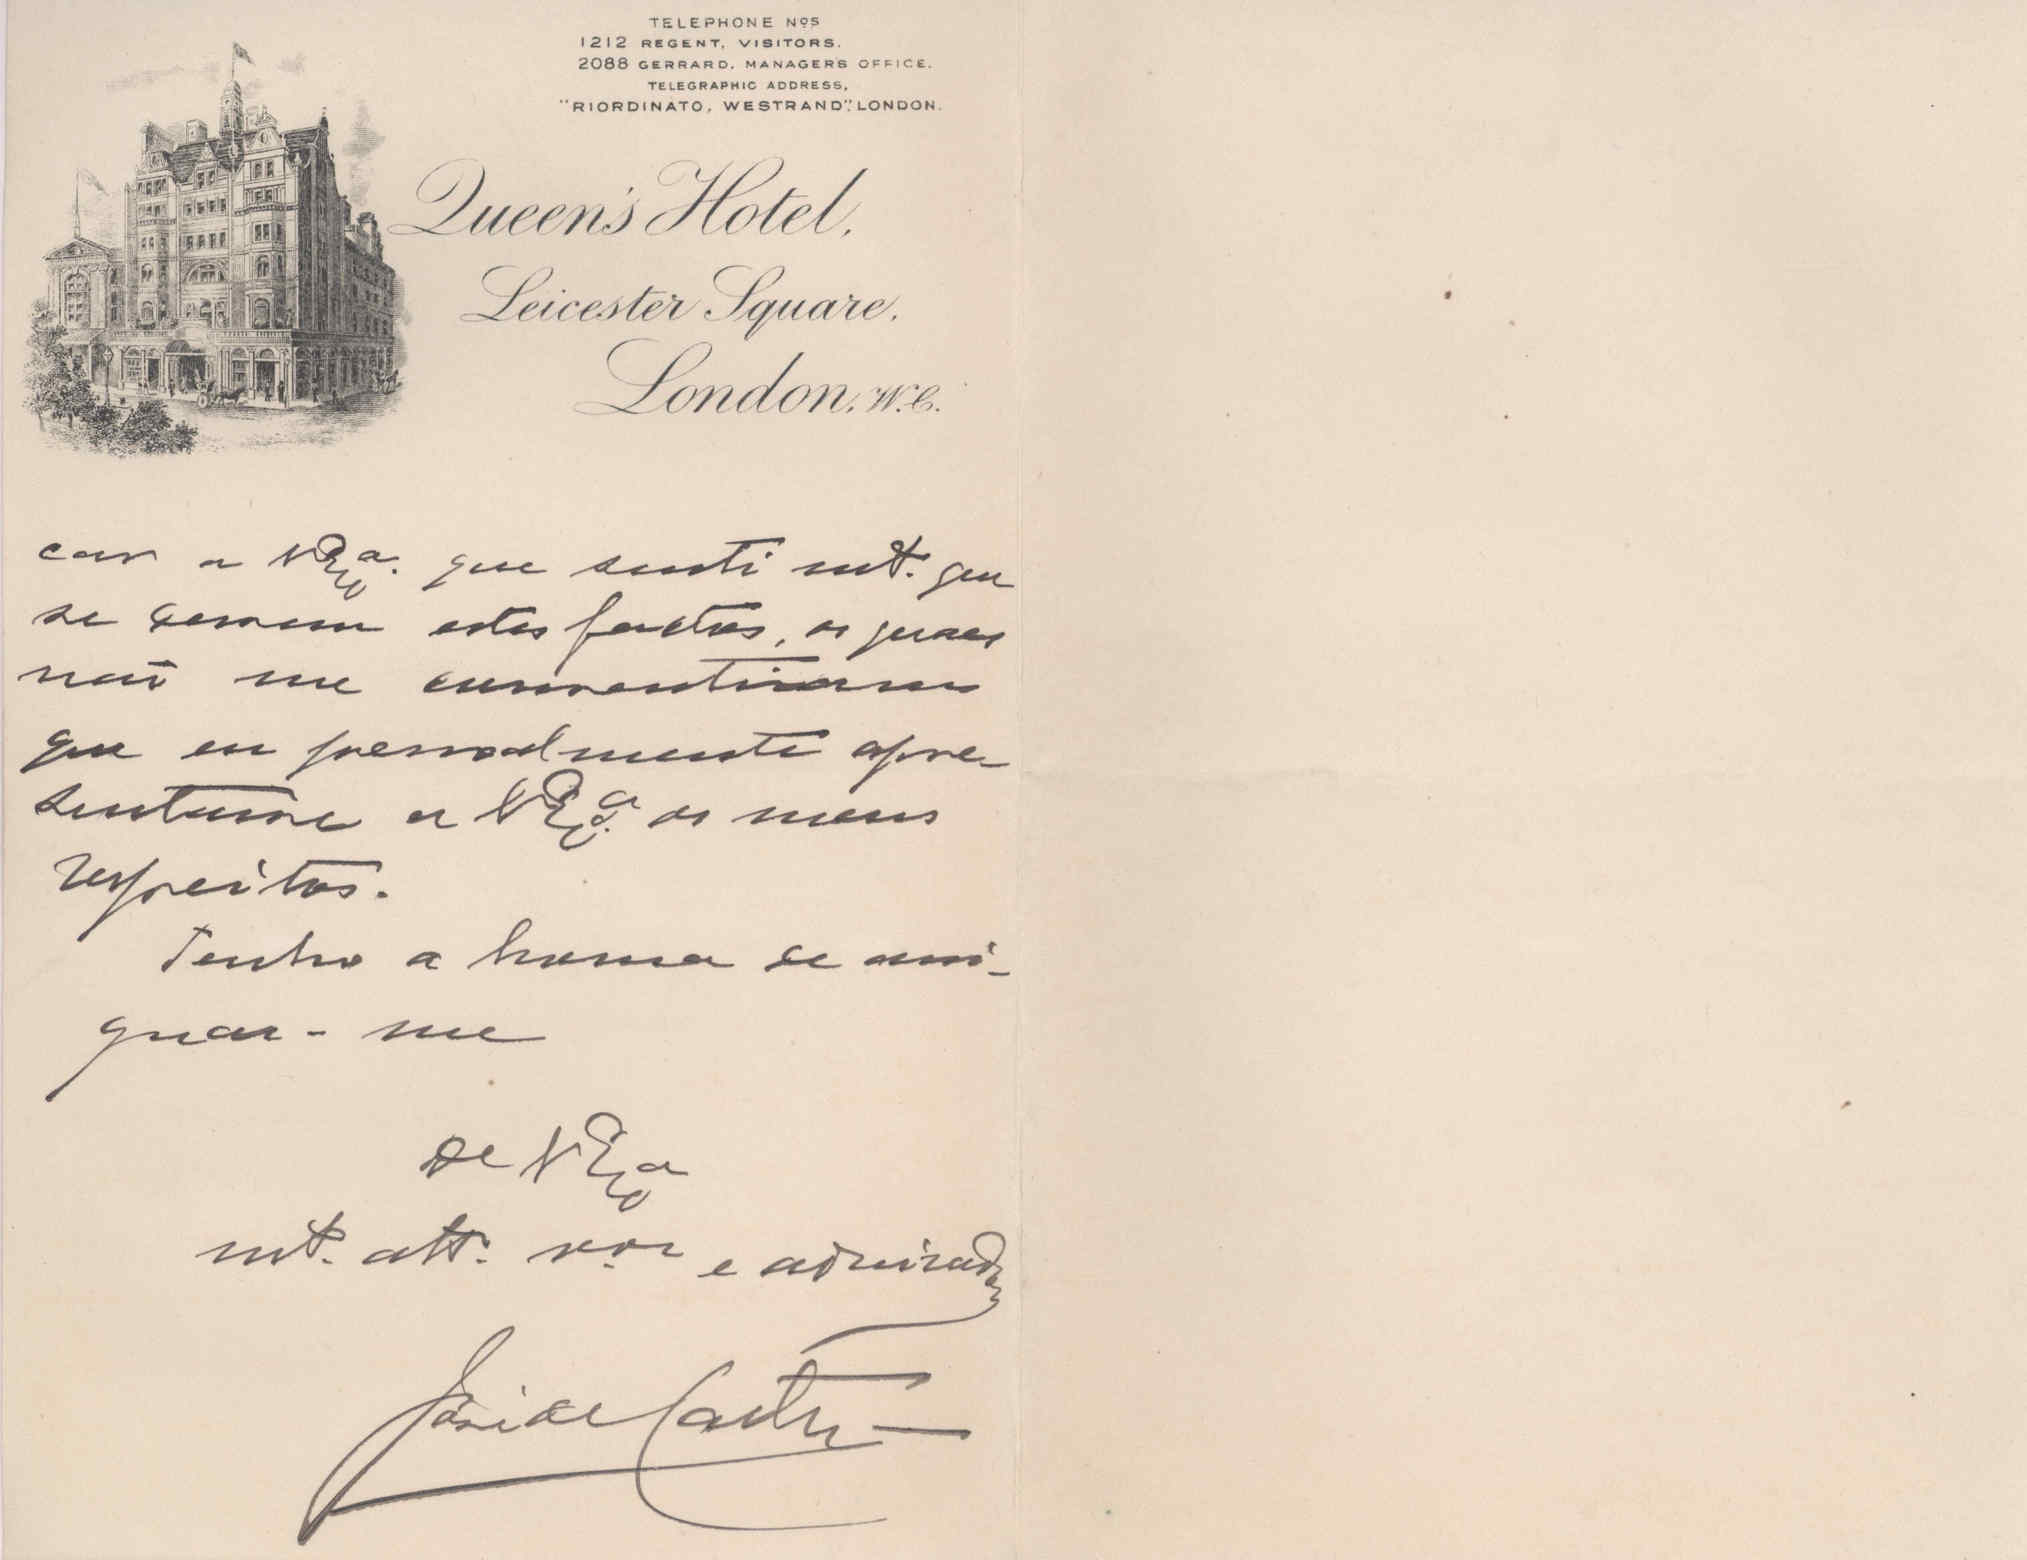 TELEPHONE Nos
1212 REGENT, VISITORS.
2088 GERRARD, MANAGERS OFFICE.
TELEGRAPHIC ADDRESS,
"RIORDINATO, WESTRAND", LONDON.
Queen's Hotel,
Leicester Square,
London, W.C.
car a V Exa. que senti mto. que
se dessem estes factos, os quaes
não me consentiram
que eu pessoalmente apre-
sentasse a V Exa. os meus
respeitos.
Tenho a honra de assi-
gnar-me
De V Exa
mto. atto. vor e admirador
José de Castro